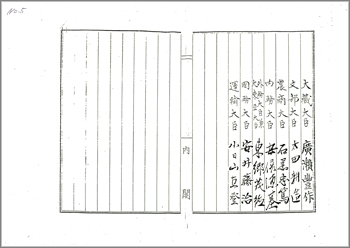 No.5
大藏大臣 廣瀬豊作
文部大臣 太田耕造
農商大臣 石黒忠篤
内務大臣 安倍源基
外務大臣兼
大東亞大臣 東郷茂徳
國務大臣 安井藤治
運輸大臣 小日山直登
内閣